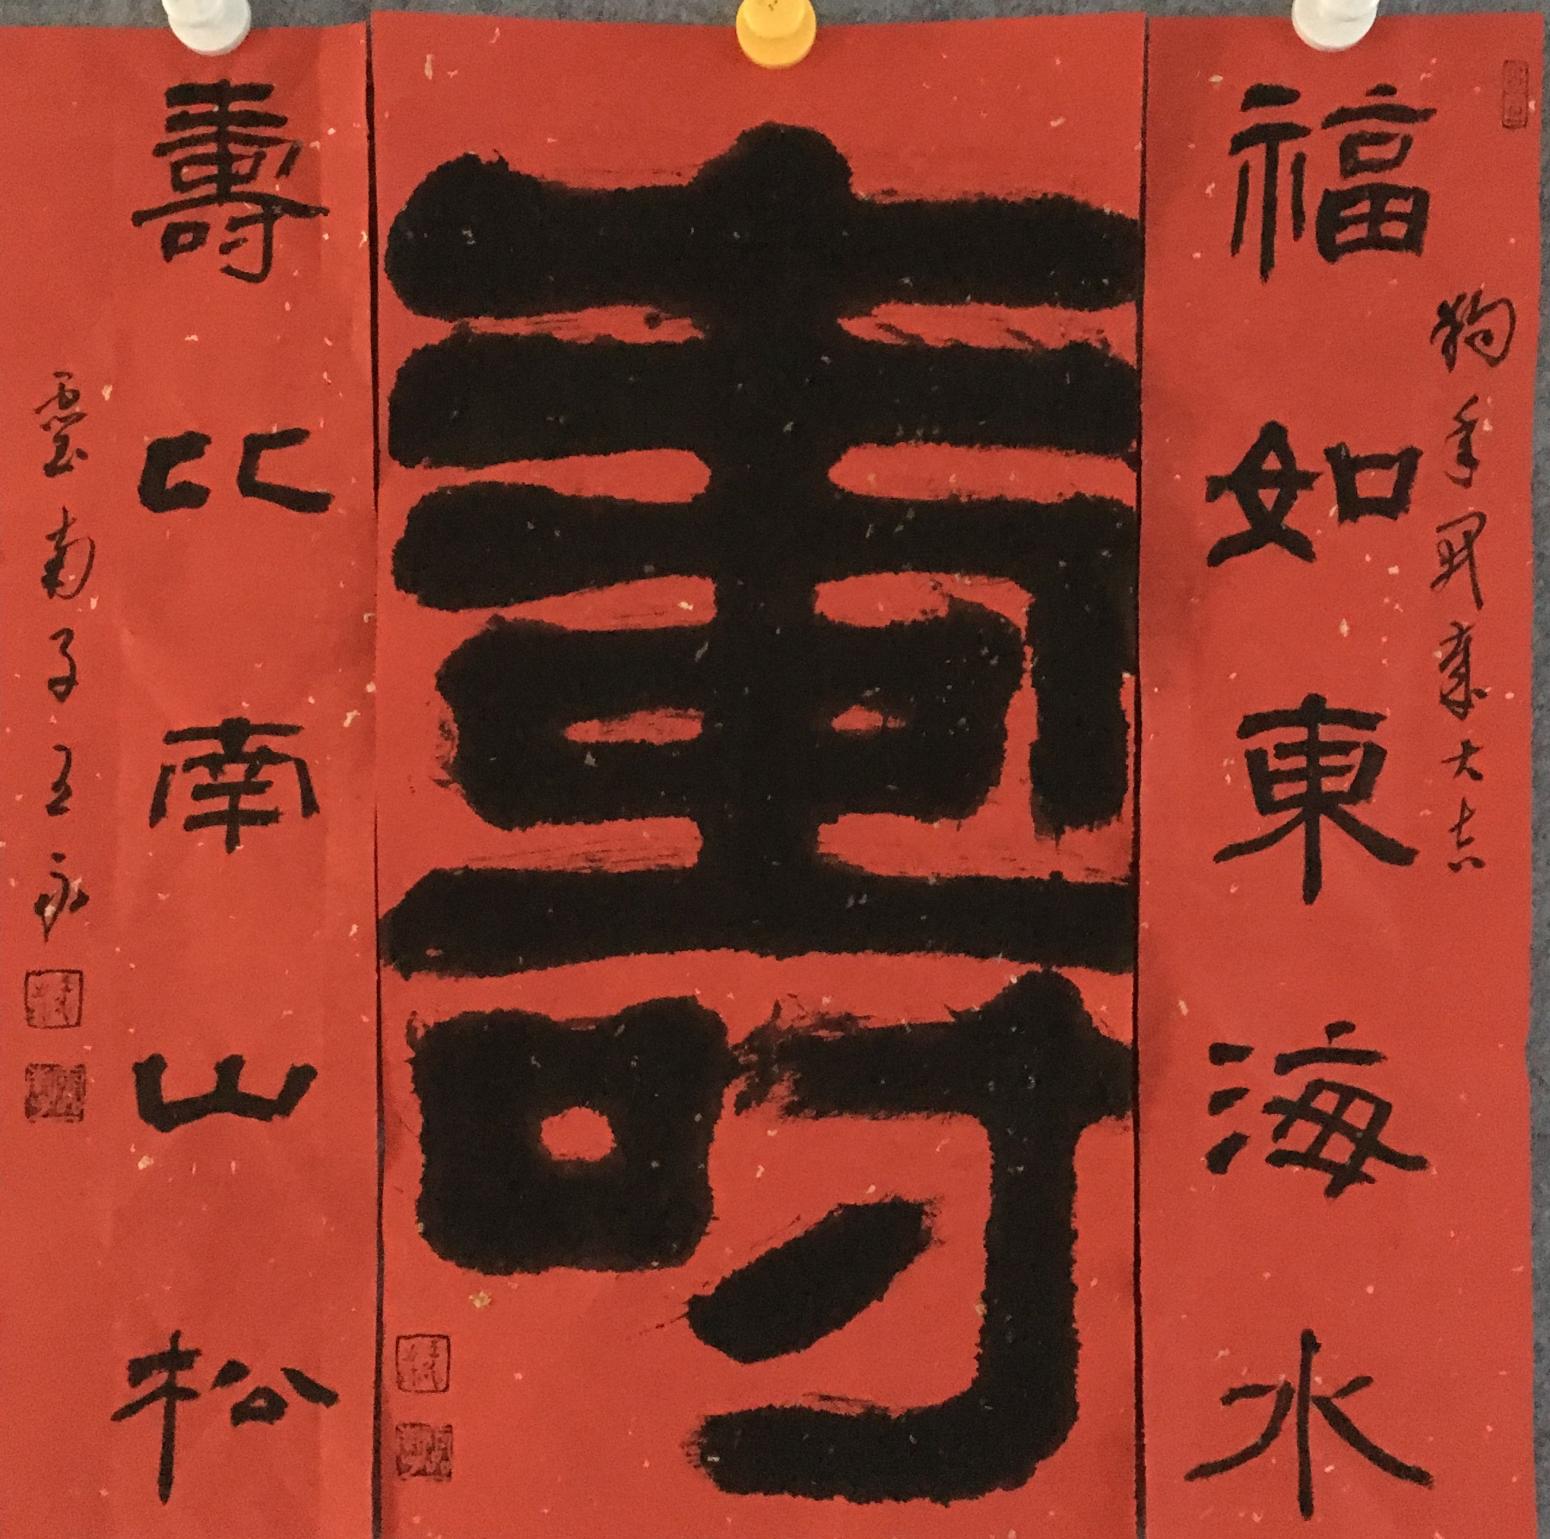 福如東海水
狗年 大吉
壽
壽比南山松
靈南子王永